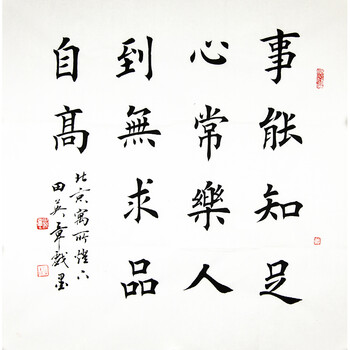 事能知足
心常樂人
到無求品
自髙
北京寓所燈下
田英章戲墨